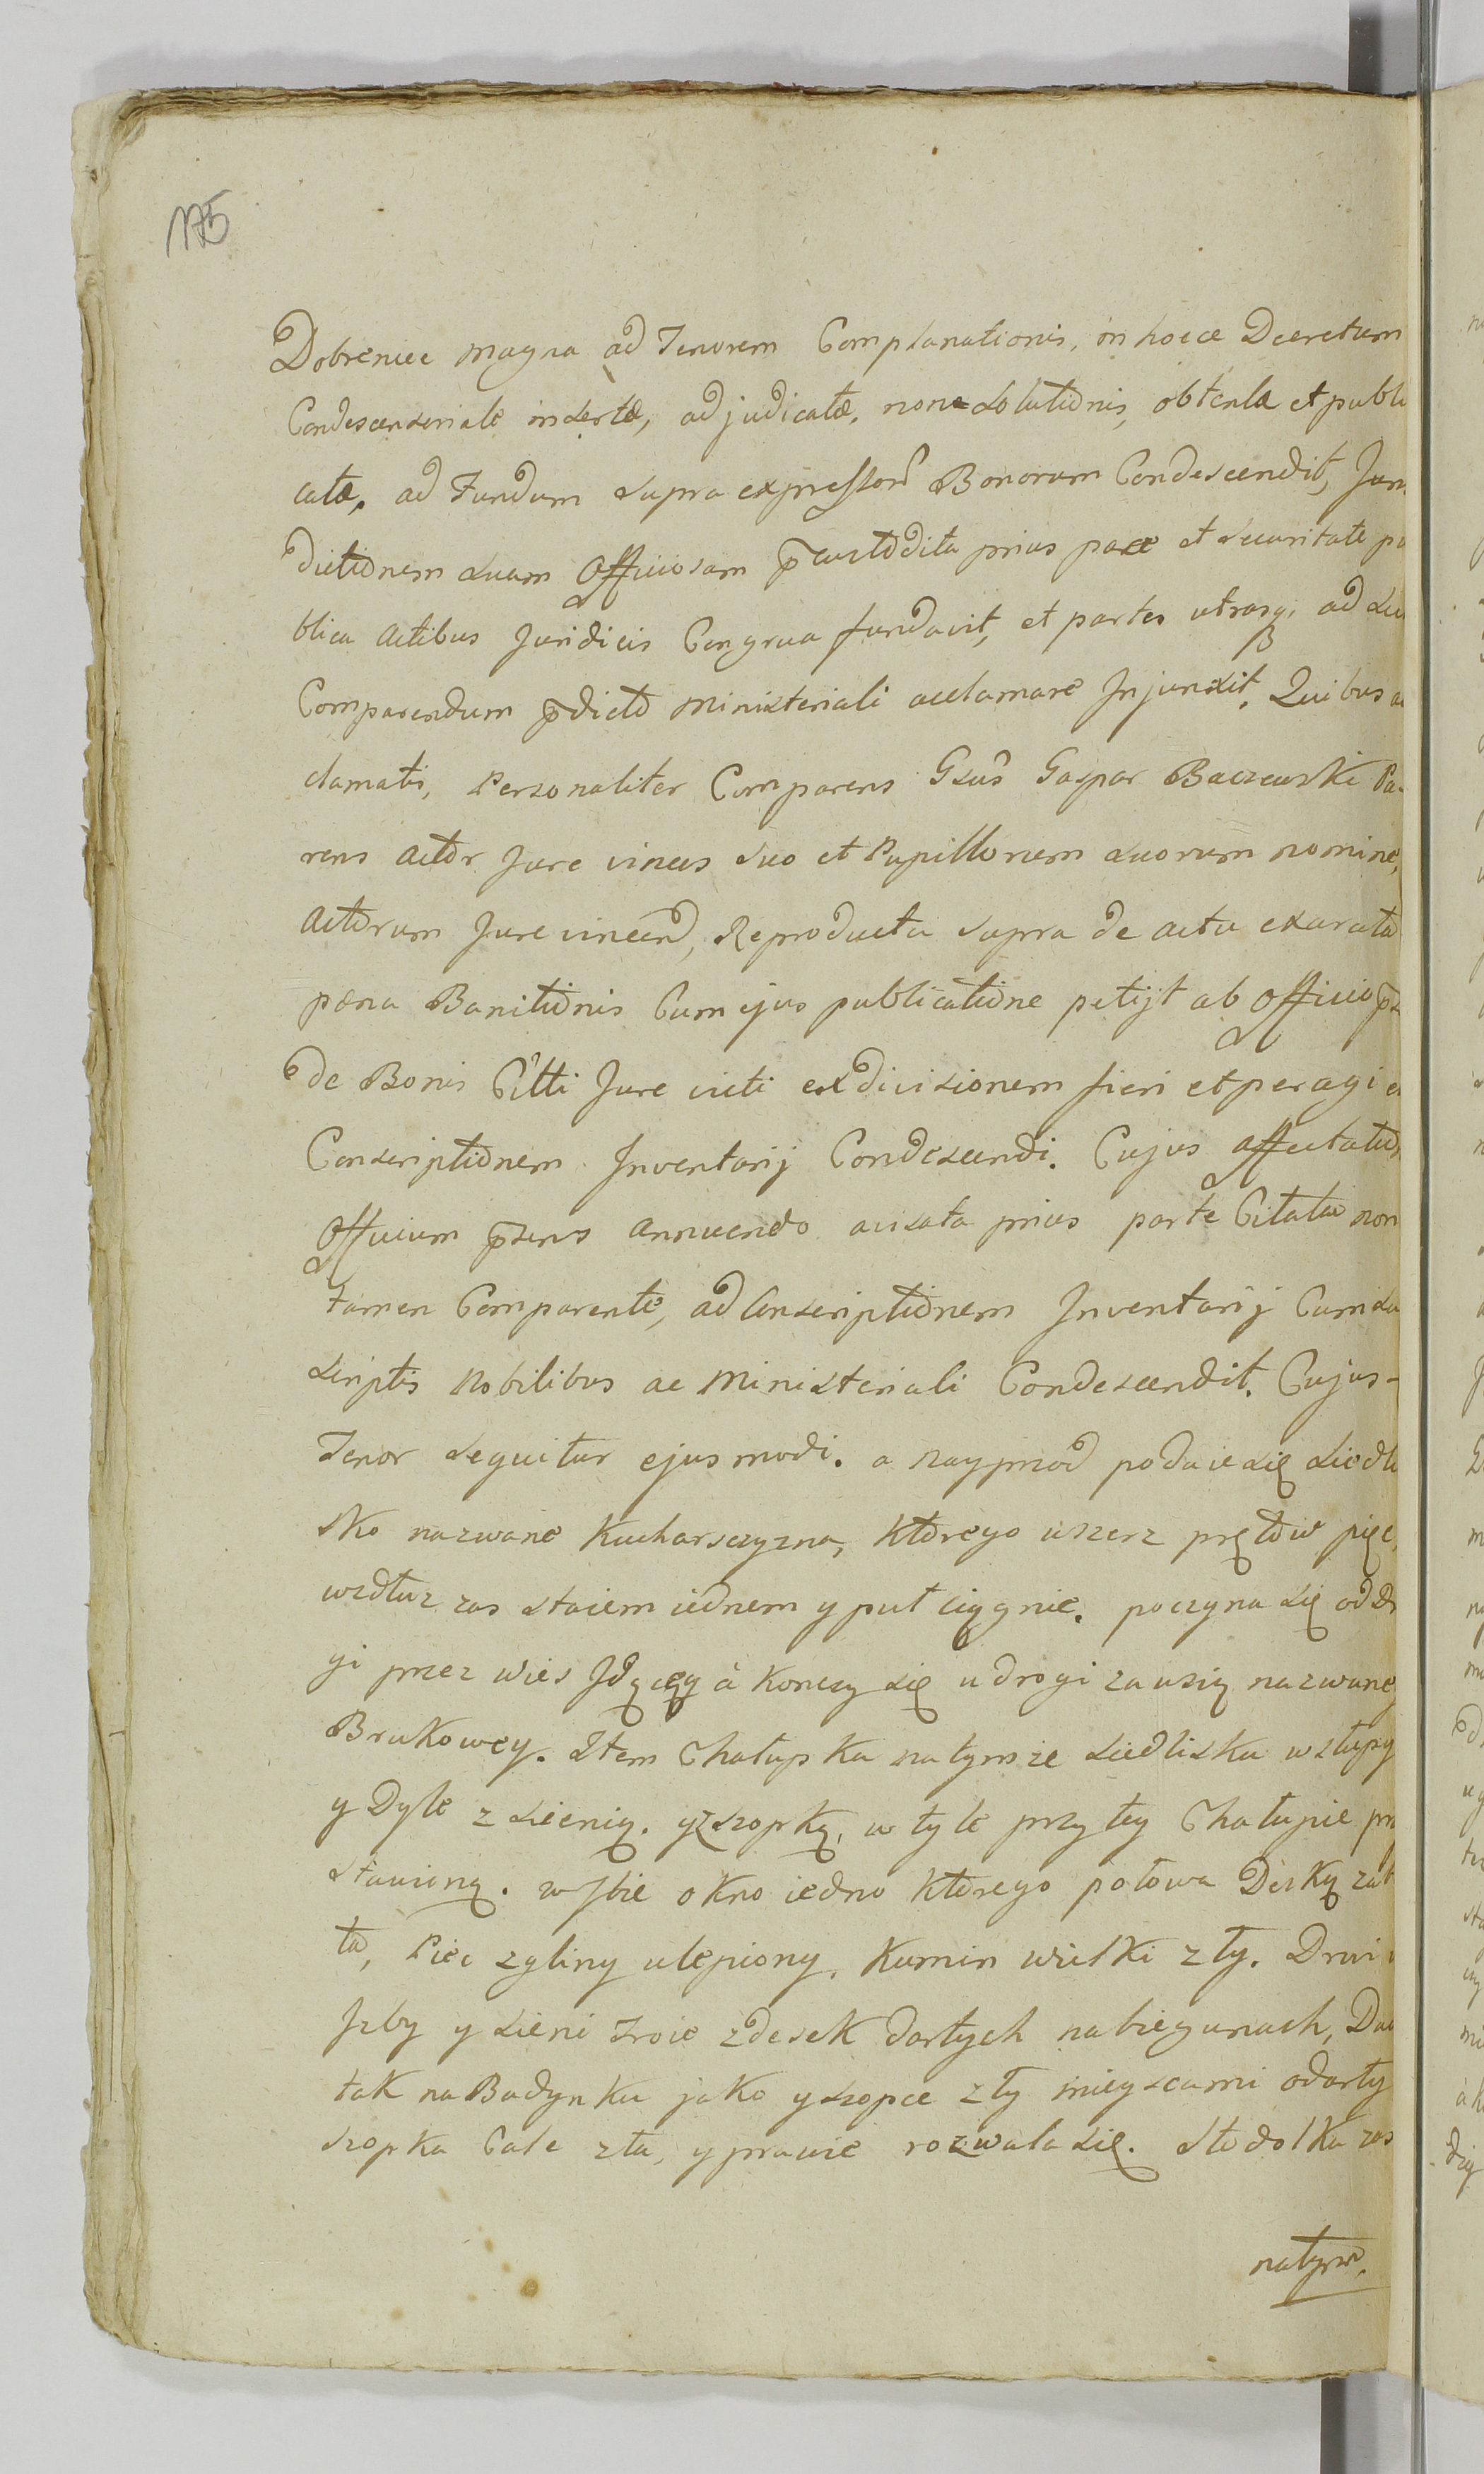 175
Dobreniec magna ad Tenorem Complanationis, in hocce Decretum
Condescensoriale insertæ, adjudicatæ, non solutionis, obtenta et publi
catæ, ad Fundum supra expressorũ Bonorum Condescendit, Juris
dictionem suam Officiosam p̃custodita prius pace et securitate pu
blica actibus Juridicis Congrua fundavit, et partes utrasq; ad sui
Comparendum p̃dicto Ministeriali acclamare Injunxit, Quibus ac
clamatis, Personaliter Comparens Gsus Gaspar Baczewski Pa-
rens actor Jure vincens suo et Pupillorum suorum nomine,
actorum Jure vincen̄d, Reproducta supra de actu exarata
pæna Banitionis Cum ejus publicatione petijt ab Officio p̃s
de Bonis Citti Jure victi exdivisionem fieri et peragi et
Conscriptionem Inventarij Condescendi. Cujus affectatio
Officium p̃sens annuendo avisata prius parte Citata non
tamen Comparente, ad Conscriptionem Inventarij Cum su
scriptis Nobilibus ac Ministeriali Condescendit. Cujus-
Tenor sequitur ejusmodi. a Nayprzod podaie się siedli
sko nazwane Kucharszczyzna, ktorego wszerz prętow pięć,
wzdłuz zas staiem iednem y puł ciągnie. poczyna się od dro
gi przez wies Jdącęy à konczy się u drogi za wsią nazwaney
Brukowey. Item Chałupka na tymze siedlisku w słupy
y Dyle z sienią. y z szopką, w tyle przy tey Chałupie przy
stawioną. w Jbie okno iedno ktorego połowa Deską zabi
ta, Piec z gliny ulepiony, Kumin wielki zły. Drzwi u
Jzby y sieni Troie z desek dartych na biegunach, Dach
tak na Budynku jako y szopce zły mieyscami odarty
szopka Cale zła, y prawie rozwala się. Stodolka zas
na tym,